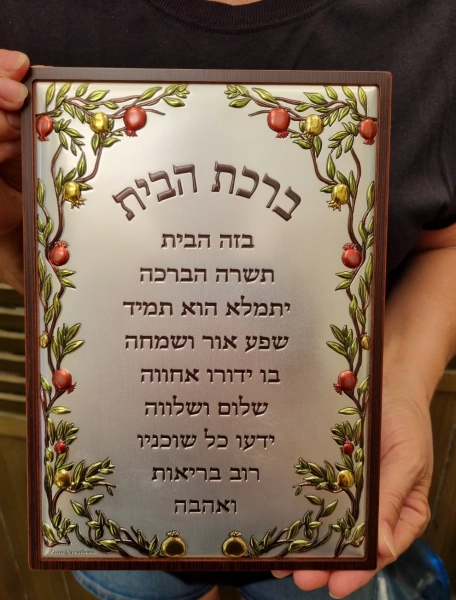 ברכת הבית
בזה הבית
תשרה הברכה
יתמלא הוא תמיד
שפע אור ושמחה
בו ידורו אחווה
שלום ושלווה
ידעו כל שוכניו
רוב בריאות
ואהבה